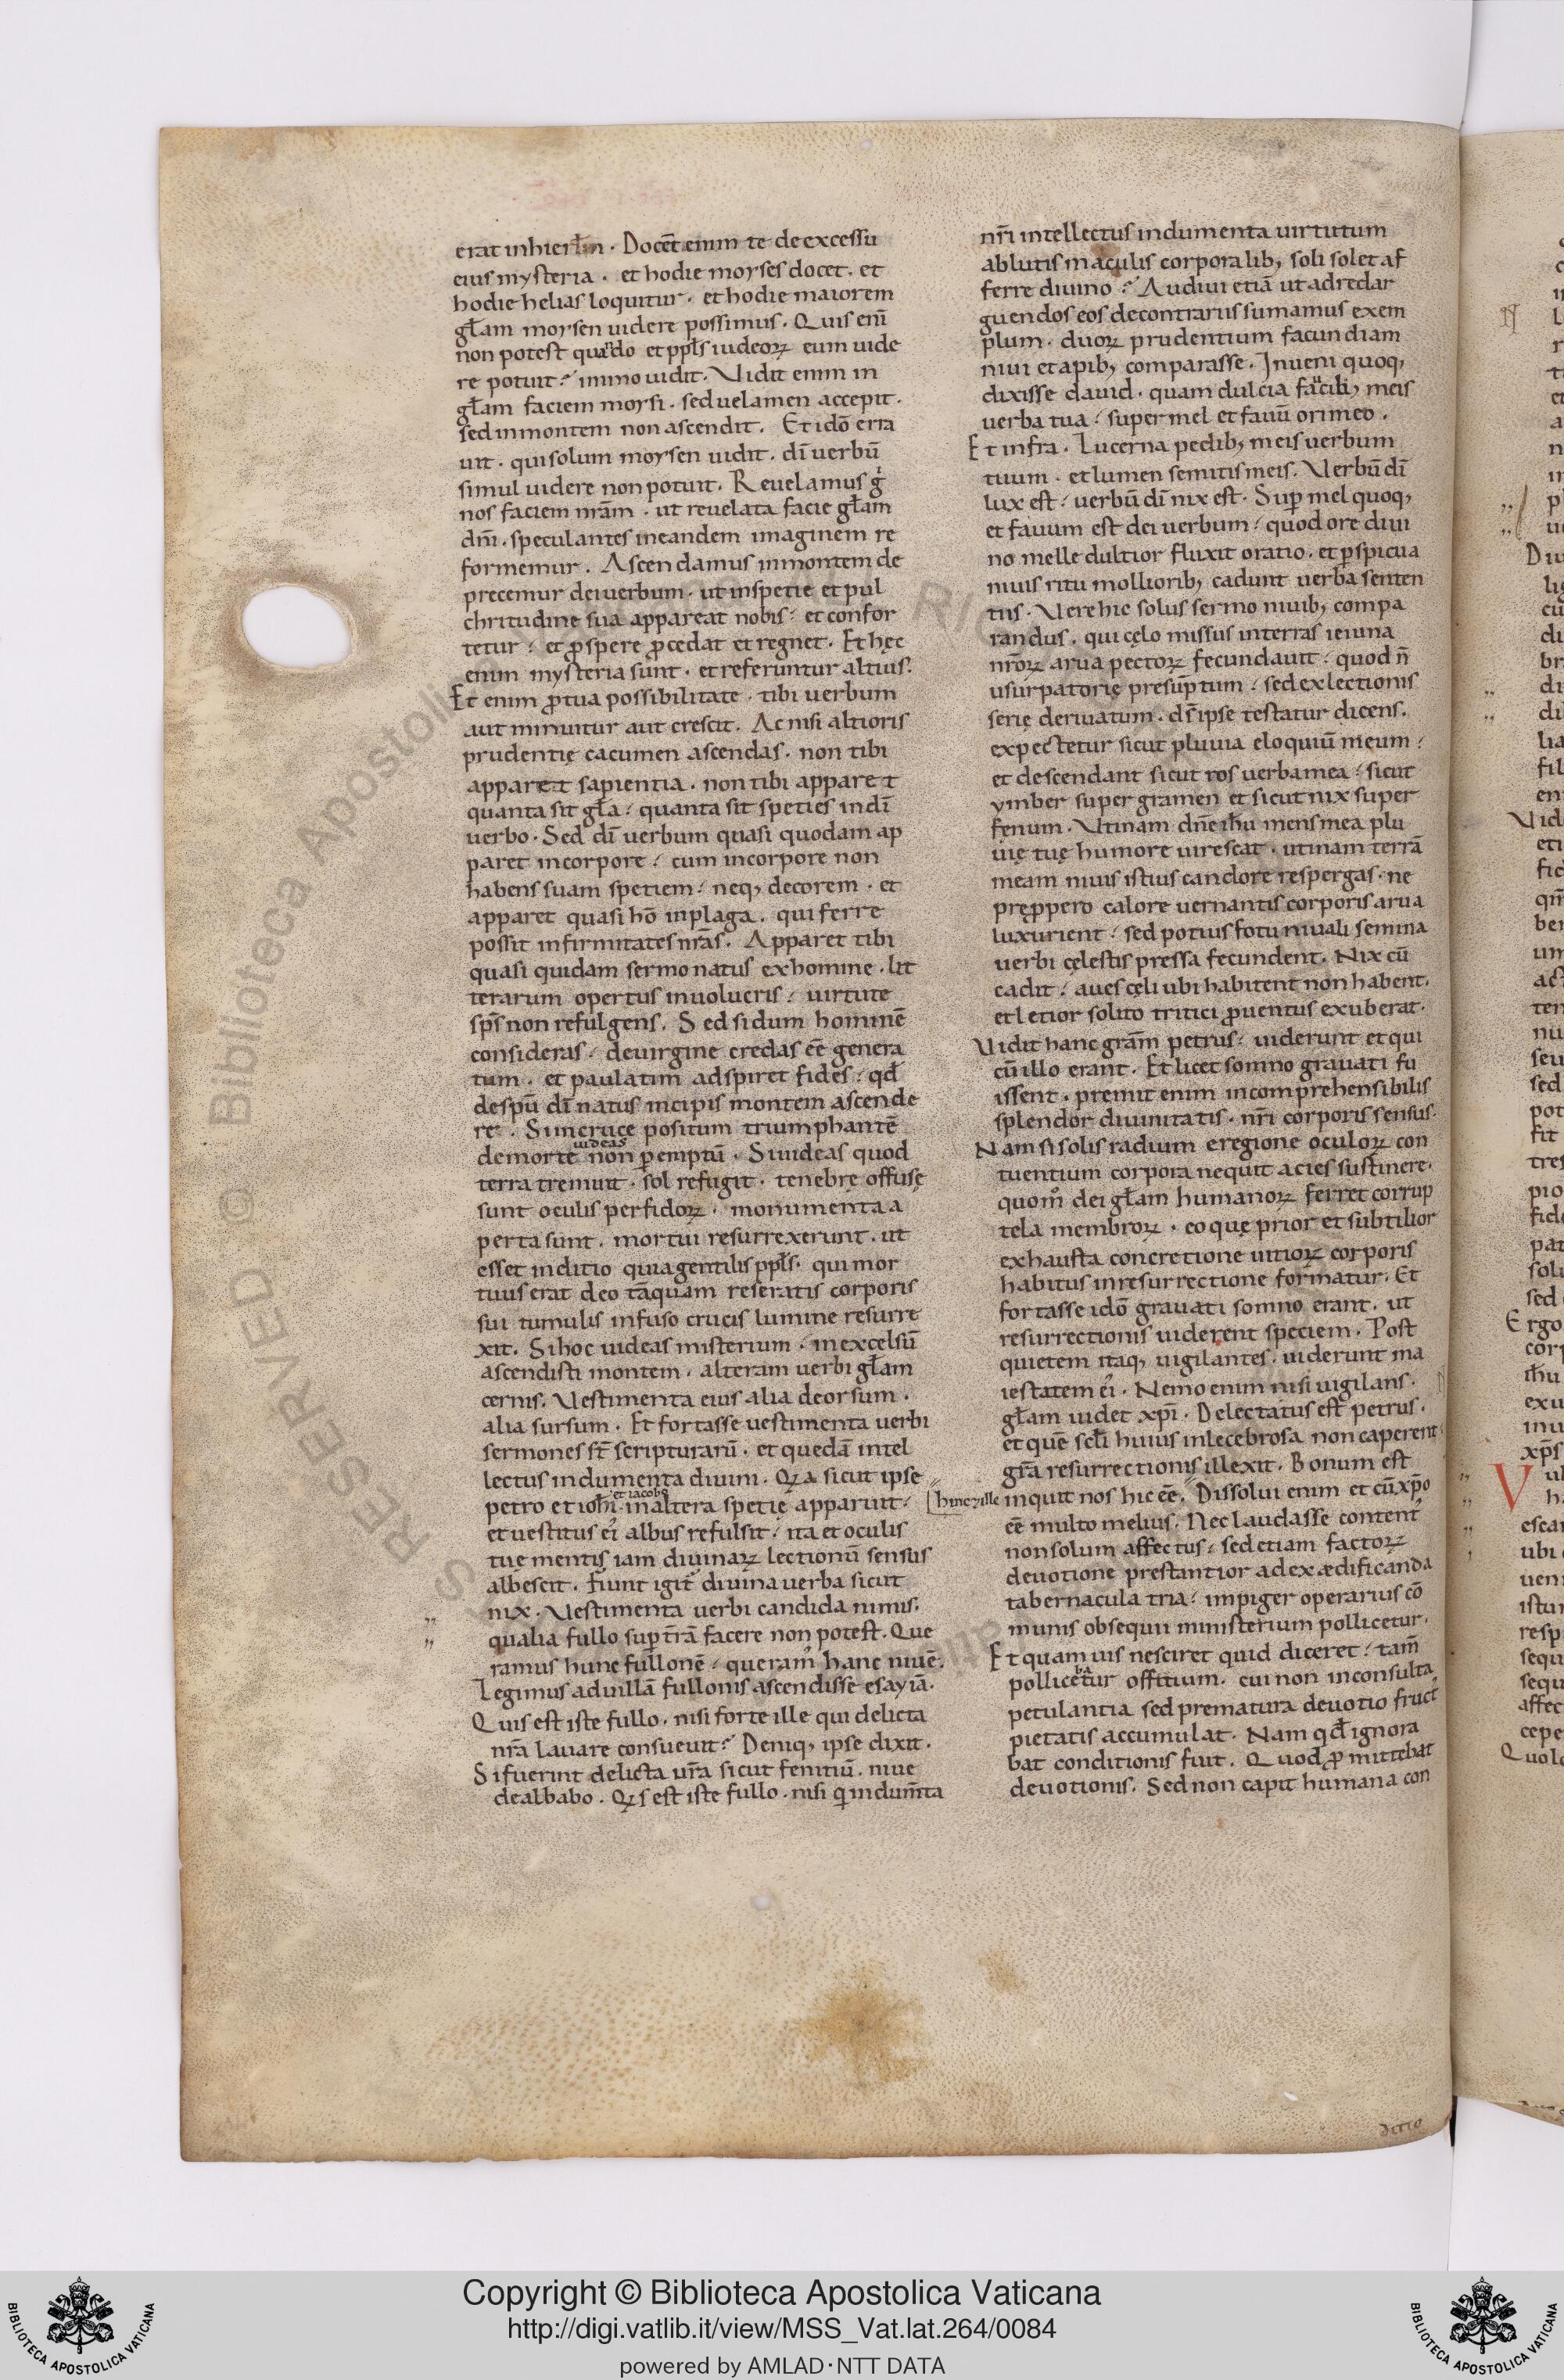 erat inhierl̄m · Docēt enim te deexcessu
eius mysteria · et hodie moyses docet · et
hodie helias loquitur · et hodie maiorem
gl̄am moysen uidere possimus · Quis enī
non potest quādo et ppl̄s iudeoꝝ eum uide
re potuit · immo uidit · Vidit enim in
gl̄am faciem moysi · sed uelamen accepit ·
sed inmontem non ascendit · Et idō erra
uit · qui solum moysen uidit · dī uerbū
simul uidere non potuit · Reuelamus g͛
nos faciem nr̄am · ut reuelata facie gl̄am
dn̄i · speculantes ineandem imaginem re
formemur · Ascendamus inmontem de
precemur dei uerbum · ut inspetie et pul
chritudine sua appareat nobis · et confor
tetur · et ꝓspere ꝓcedat et regnet · Et hęc
enim mysteria sunt · et referuntur altius ·
Et enim ꝓ tua possibilitate · tibi uerbum
aut minuitur aut crescit · Ac nisi altioris
prudentię cacumen ascendas · non tibi
apparet sapientia · non tibi apparet
quanta sit gl̄a · quanta sit speties in dī
uerbo · Sed dī uerbum quasi quodam ap
paret incorpore · cum incorpore non
habens suam spetiem · neq; decorem · et
apparet quasi hō inplaga · qui ferre
possit infirmitates nr̄as · Apparet tibi
quasi quidam sermo natus ex homine · lit
terarum opertus inuolucris · uirtute
sp̄s non refulgens · Sed si dum hominē
consideras · deuirgine credas eē genera
tum · et paulatim adspiret fides · qd̄
despū dī natus incipis montem ascende
re · Si incruce positum triumphantē
demorte uideas non ꝑemptū · Si uideas quod
terra tremuit · sol refugit · tenebrę offusę
sunt oculis perfidoꝝ · monumenta a
perta sunt · mortui resurrexerunt · ut
esset inditio quia gentilis ppl̄s · qui mor
tuus erat deo tāquam reseratis corporis
sui tumulis infuso crucis lumine resurre
xit · Si hoc uideas misterium · inexcelsū
ascendisti montem · alteram uerbi gl̄am
cernis · Vestimenta eius alia deorsum ·
alia sursum · Et fortasse uestimenta uerbi
sermones st̄ scripturarū · et quedā intel
lectus indumenta diuini · Qꝛa sicut ipse
petro et ioh̄i et iacobo inaltera spetię apparuit ·
et uestitus ei᷒ albus refulsit · ita et oculis
tuę mentis iam diuinaꝝ lectionū sensus
albescit · Fiunt igit͛ diuina uerba sicut
nix · Vestimenta uerbi candida nimis ·
qualia fullo suꝑ tr̄ā facere non potest · Que
ramus hunc fullonē · queram᷒ hanc niuē ·
Legimus aduillā fullonis ascendisse esayiā ·
Quis est iste fullo · nisi forte ille qui delicta
nr̄a lauare consueuit · Deniq; ipse dixit ·
Si fuerint delicta ur̄a sicut fenitiū · niue
dealbabo · Qꝛs est iste fullo · nisi q̇ indum̄ta
nr̄i intellectus indumenta uirtutum
ablutis maculis corporalib; soli solet af
ferre diuino · Audiui etiā ut ad redar
guendos eos decontrariis sumamus exem
plum · duoꝝ prudentium facundiam
niui et apib; comparasse · Inueni quoq;
dixisse dauid · quam dulcia faucib; meis
uerba tua · super mel et fauū ori meo ·
Et infra · Lucerna pedib; meis uerbum
tuum · et lumen semitis meis · Verbū dī
lux est · uerbū dī nix est · Suꝑ mel quoq;
et fauum est dei uerbum · quod ore diui
no melle dultior fluxit oratio · et ꝑspicua
niuis ritu molliorib; cadunt uerba senten
tiis · Vere hic solus sermo niuib; compa
randus · qui cęlo missus interras ieiuna
nr̄oꝝ arua pectoꝝ fecundauit · quod n̄
usurpatorię presūptum · sed exlectionis
serię deriuatum · ds̄ ipse testatur dicens ·
expectetur sicut pluuia eloquiū meum ·
et descendant sicut ros uerba mea · sicut
ymber super gramen et sicut nix super
fęnum · Vtinam dn̄e ih̄u mens mea plu
uię tuę humore uirescat · utinam terrā
meam niuis istius candore respergas · ne
pręppero calore uernantis corporis arua
luxurient · sed potius fotu niuali semina
uerbi cęlestis pressa fecundent · Nix cū
cadit · aues cęli ubi habitent non habent ·
et letior solito tritici ꝓuentus exuberat ·
Vidit hanc grām petrus · uiderunt et qui
cū illo erant · Et licet somno grauati fu
issent · premit enim incomprehensibilis
splendor diuinitatis · nr̄i corporis sensus ·
Nam si solis radium eregione oculoꝝ con
tuentium corpora nequit acies sustinere ·
quom̊ dei gl̄am humanoꝝ ferret corrup
tela membroꝝ · eo quę prior et subtilior
exhausta concretione uitioꝝ corporis
habitus inresurrectione formatur · Et
fortasse idō grauati somno erant · ut
resurrectionis uiderent speciem · Post
quietem itaq; uigilantes · uiderunt ma
iestatem ei᷒ · Nemo enim nisi uigilans ·
gl̄am uidet xp̄i · Delectatus est petrus ·
et quē scl̄i huius inlecebrosa non caperent ·
gr̄a resurrectionis illexit · Bonum est
hinc ⁊ ille inquit nos hic eē · Dissolui enim et cū xp̄o
eē multo melius · Nec laudasse content᷒
non solum affectus · sed etiam factoꝝ
deuotione prestantior ad exædificanda
tabernacula tria · impiger operarius cō
munis obsequii ministerium pollicetur ·
Et quamuis nesciret quid diceret · tam̄
pollicebatur offitium · cui non inconsulta
petulantia sed prematura deuotio fruct᷒
pietatis accumulat · Nam qd̄ ignora
bat conditionis fuit · Quod ꝓmittebat
deuotionis · Sed non capit humana con
ditio
Copyright © Biblioteca Apostolica Vaticana
http://digi.vatlib.it/view/MSS_Vat.lat.264/0084
powered by AMLAD·NTT DATA
BIBLIOTECA APOSTOLICA VATICANA
BIBLIOTECA APOSTOLICA VATICANA